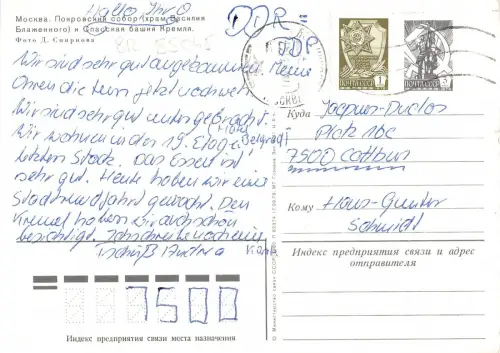 Hallo Ihr
Москва. Покровский собор (храм Василия
Блаженного) и Спасская башня Кремля.
Фото Д. Смирнова
Wir sind sehr gut angekommen. Meine
Ohren die tun jetzt noch weh.
Wir sind sehr gut untergebracht.
Wir wohnen in der 19. Etage
letzten Stock. Das Essen ist
sehr gut. Heute haben wir eine
Stadtrundfahrt gemacht. Den
Kreml haben wir auch schon
besichtigt. Ich schreibe noch einen
Tschüß
Hotel Belgrad I
DDR
DDR
МОСКВА
ПОЧТА СССР 1
ПОЧТА СССР
Куда Jacques-Duclos
Platz 16c
7500 Cottbus
Кому Hans-Gunter
Schmidt
Индекс предприятия связи и адрес
отправителя
7500
Индекс предприятия связи места назначения